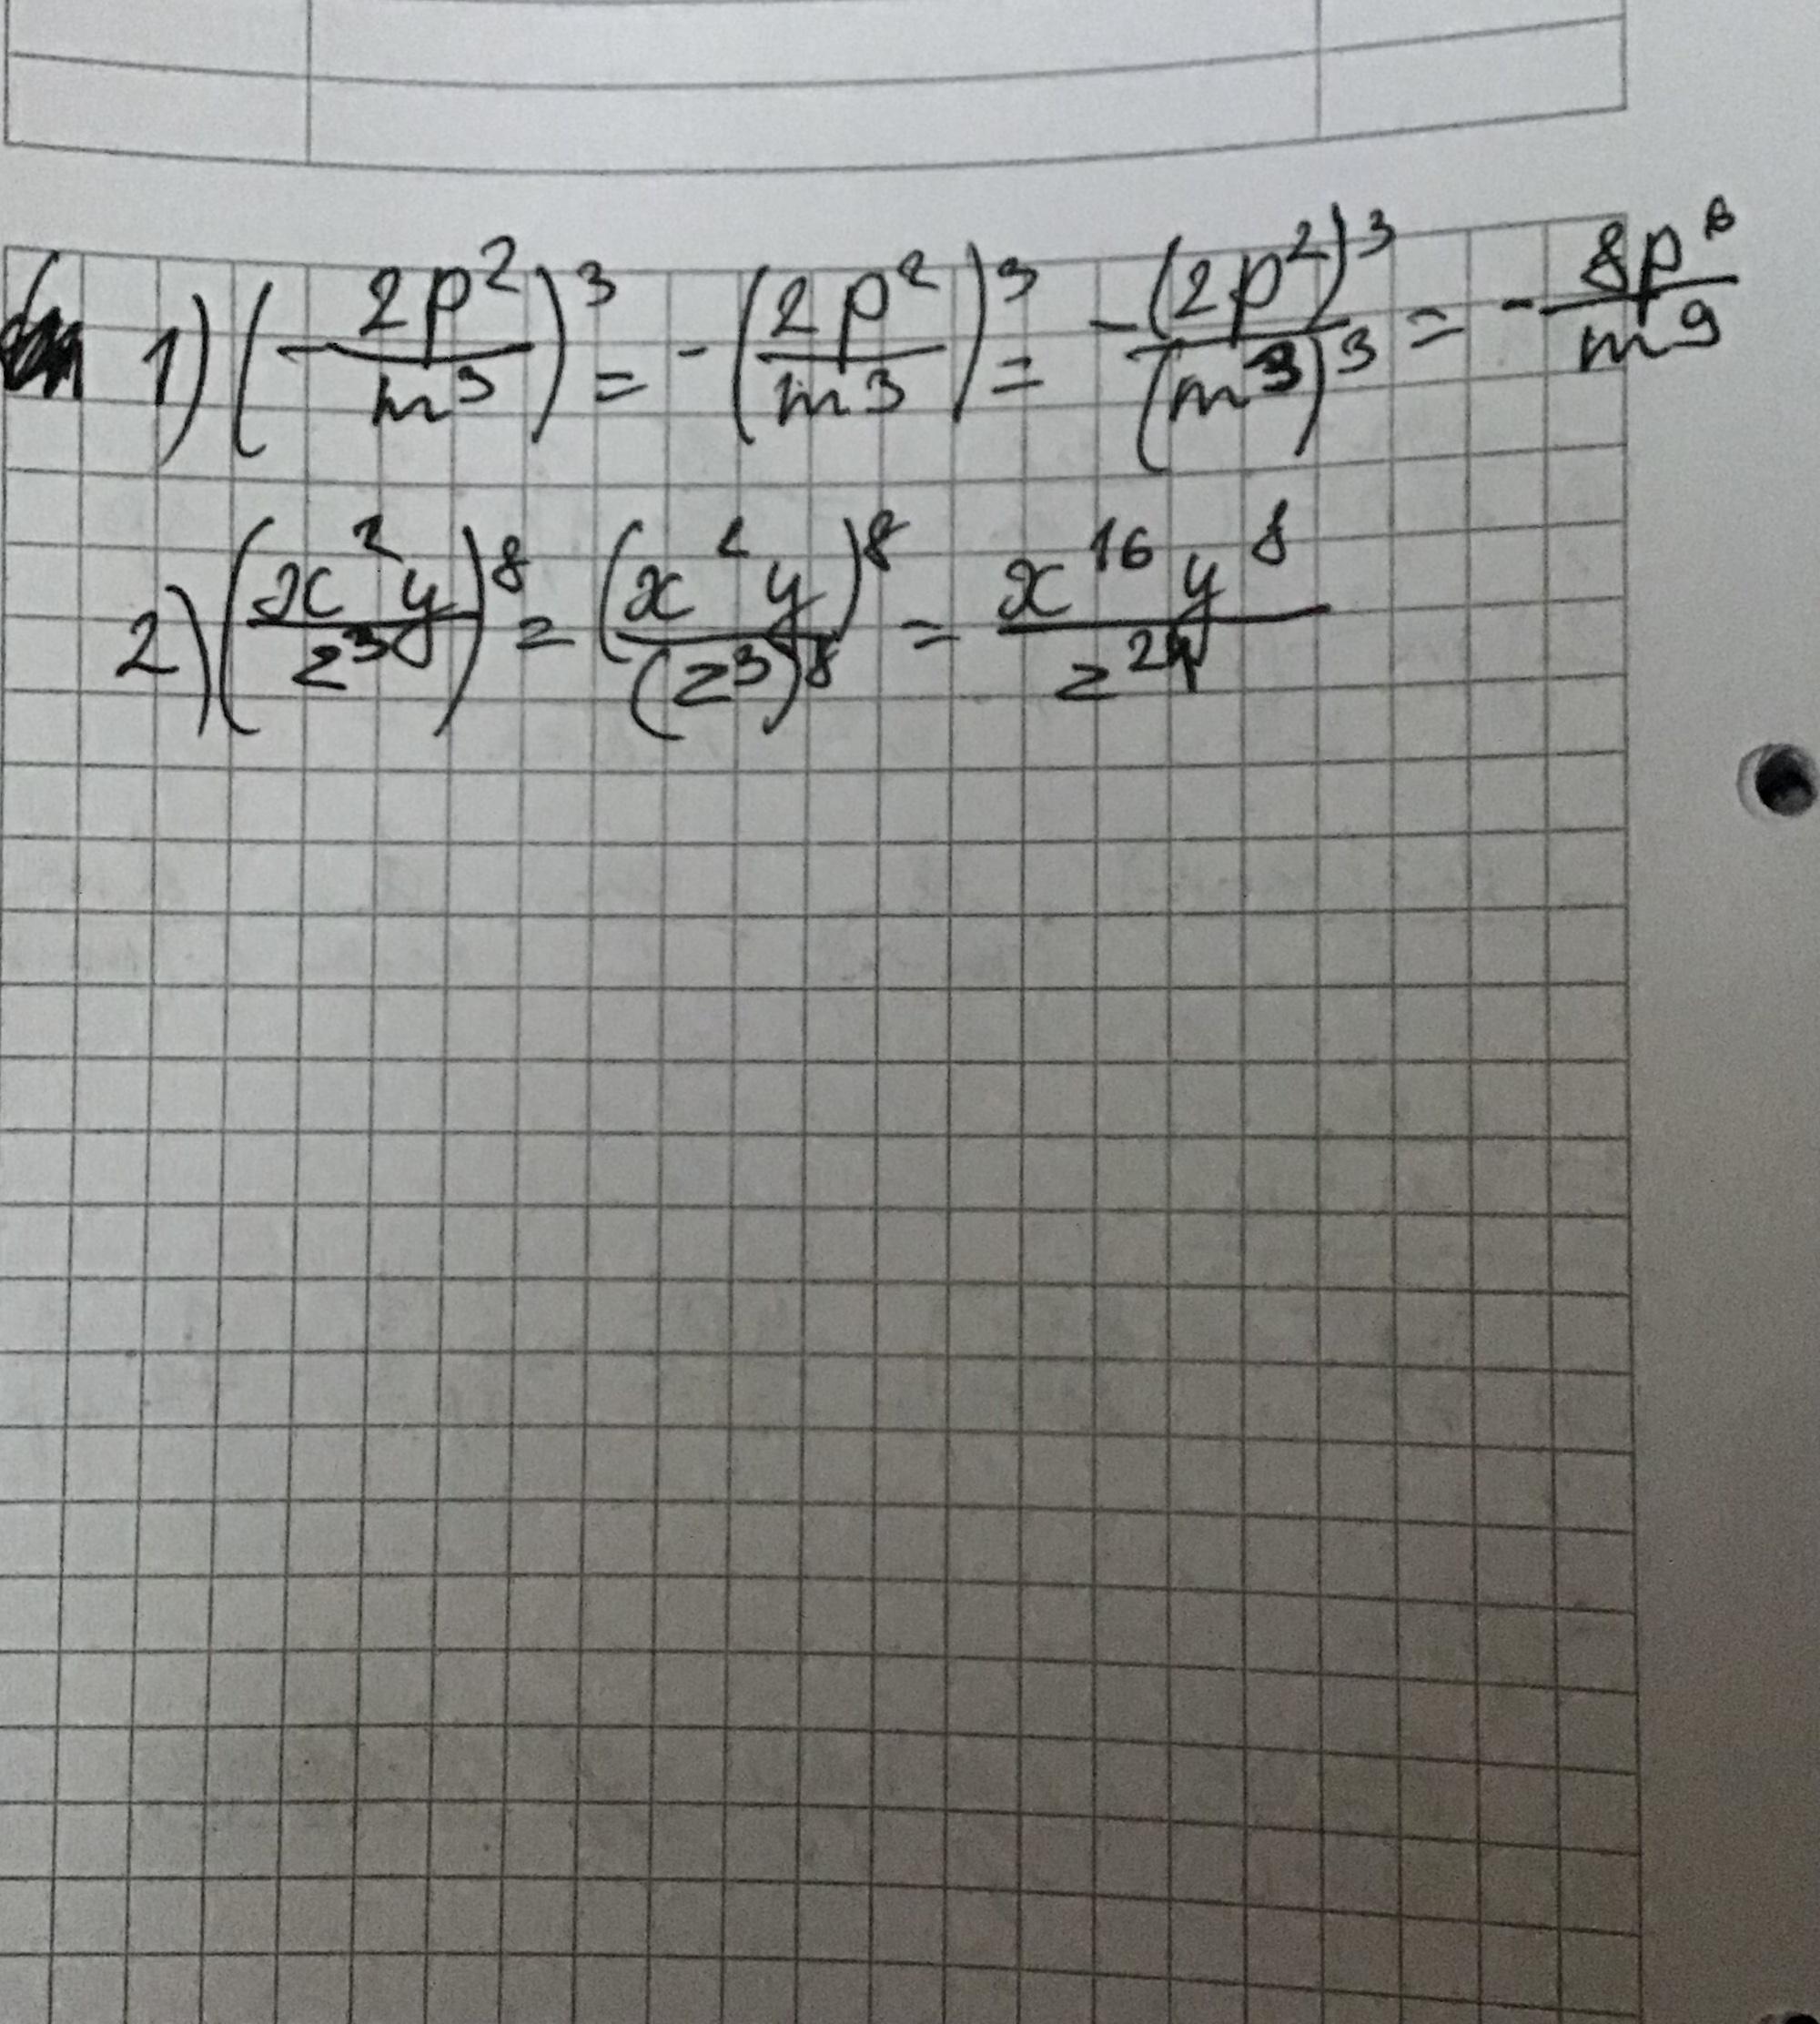 1) (-2p²/m³)³ = -(2p²/m³)³ = -(2p²)³/(m³)³ = -8p⁶/m⁹
2) (x²y/z³)⁸ = (x²y)⁸/(z³)⁸ = x¹⁶y⁸/z²⁴